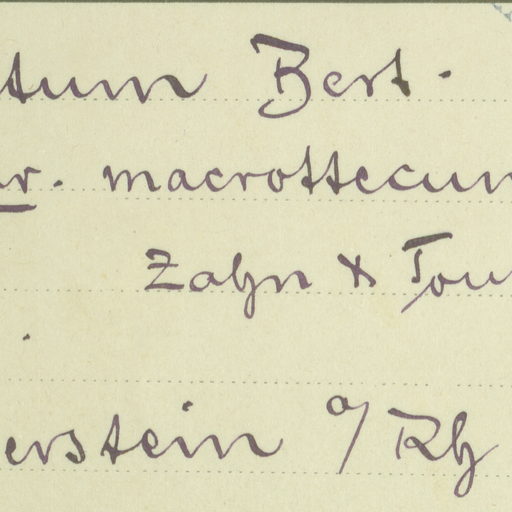 tum Bert.
ar. macrottecum
Zahn & Tou
erstein a/Rh